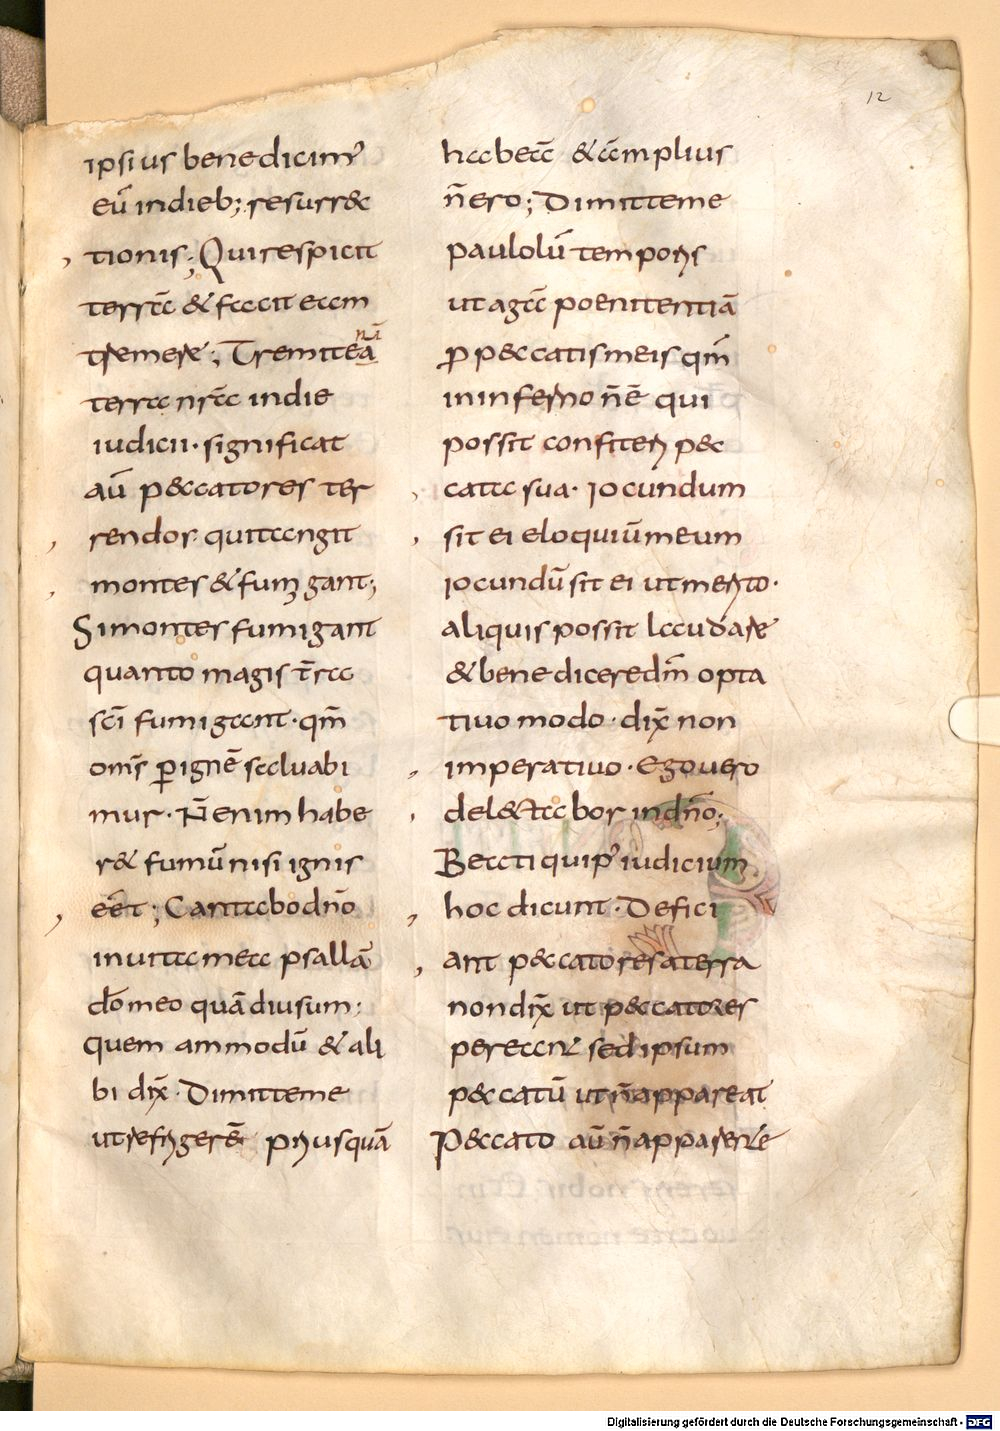 12
ipsius benedicim᾿
eū indieb; resurr&
tionis; Qui respicit
terrā & facit eam
tremere; Tremit eā
nā
terra nr̄a indie
iudicii· significat
aū p&ccatores ter
rendos qui tangit
montes & fumigant;
Si montes fumigant
quanto magis t̄rae
sc̄i fumigant· qm̄
om̄s ꝑ ignē saluabi
mur· N̄ enim habe
r& fumū nisi ignis
e&; Cantabo dn̄o
in uita mea psallā
dō meo quādiu sum;
quem ammodū & ali
bi dix̄· Dimitte me
ut refrigerē priusquā
habeā & amplius
n̄ ero; Dimitte me
paulolū temporis
ut agā poenitentiā
ꝓ p&ccatis meis qm̄
in inferno n̄ ē qui
possit confiteri p&c
cata sua· Iocundum
sit ei eloquiū meum
iocundū sit ei ut merito·
aliquis possit laudare
& benedicere dm̄ opta
tiuo modo· dix̄ non
imperatiuo· Ego uero
del&tabor in dn̄o;
Beati quip᾿ iudicium
hoc dicunt· Defici
ant p&ccatores a terra
non dix̄ ut p&ccatores
pereant sed ipsum
p&ccatū ut n̄ appareat
P&ccato aū n̄ apparente
Digitalisierung gefördert durch die Deutsche Forschungsgemeinschaft - DFG